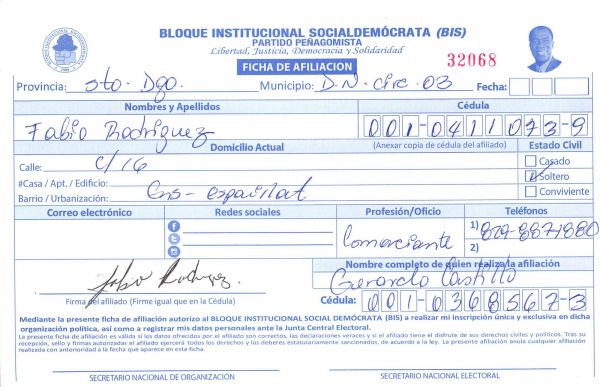 BLOQUE INSTITUCIONAL SOCIALDEMÓCRATA (BIS)
PARTIDO PEÑAGOMISTA
Libertad, Justicia, Democracia y Solidaridad
FICHA DE AFILIACION
32068
Provincia: Sto. Dgo. Municipio: D.N. circ. 03 Fecha:
Nombres y Apellidos Cédula
Fabio Rodriguez 001-0411073-9
Domicilio Actual (Anexar copia de cédula del afiliado) Estado Civil
Calle: C/16 Casado
#Casa / Apt. / Edificio: Soltero
Barrio / Urbanización: Ens- espaillat Conviviente
Correo electrónico Redes sociales Profesión/Oficio Teléfonos
Comerciante 1) 829-8871880
2)
Nombre completo de quien realiza la afiliación
Fabio Rodriguez Gerardo Castillo
Firma del afiliado (Firme igual que en la Cédula) Cédula: 001-0368567-3
Mediante la presente ficha de afiliación autorizo al BLOQUE INSTITUCIONAL SOCIAL DEMÓCRATA (BIS) a realizar mi inscripción única y exclusiva en dicha
organización política, así como a registrar mis datos personales ante la Junta Central Electoral.
La presente ficha de afiliación es válida si los datos ofrecidos por el afiliado son correctos, las declaraciones veraces y si el afiliado tiene el disfrute de sus derechos civiles y políticos. Tras su
recepción, sello y firmas autorizadas el afiliado ejercerá todos los derechos y los deberes estatutariamente sancionados, de acuerdo a la ley. La presente afiliación anula cualquier afiliación
realizada con anterioridad a la fecha que aparece en esta ficha.
SECRETARIO NACIONAL DE ORGANIZACIÓN SECRETARIO NACIONAL ELECTORAL